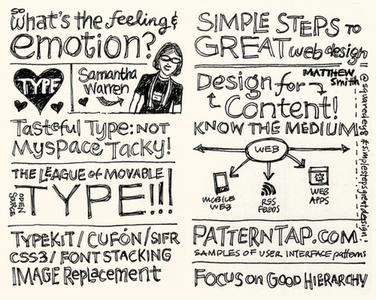 so
what's the feeling &
emotion?
TYPE
Samantha
Warren
Tasteful Type: NOT
MYSPACE TACKY!
THE LEAGUE OF MOVABLE
OPEN SOURCE
TYPE!!!
TYPEKIT / CUFÓN / SIFR
CSS3 / FONT STACKING
IMAGE Replacement
SIMPLE STEPS TO
GREAT web design
MATTHEW
Smith
Design for
Content!
KNOW THE MEDIUM
WEB
MOBILE
WEB
RSS
FEEDS
WEB
APPS
PATTERNTAP.COM
SAMPLES OF USER INTERFACE patterns
FOCUS on GOOD HIERARCHY